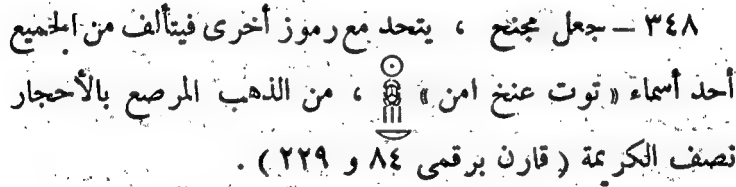 ٣٤٨ – جعل مجنح ، يتحد مع رموز أخرى فيتألف من الجميع
أحد أسماء « توت عنخ امن » ، من الذهب المرصع بالأحجار
نصف الكريمة ( قارن برقمى ٨٤ و ٢٢٩ ) .